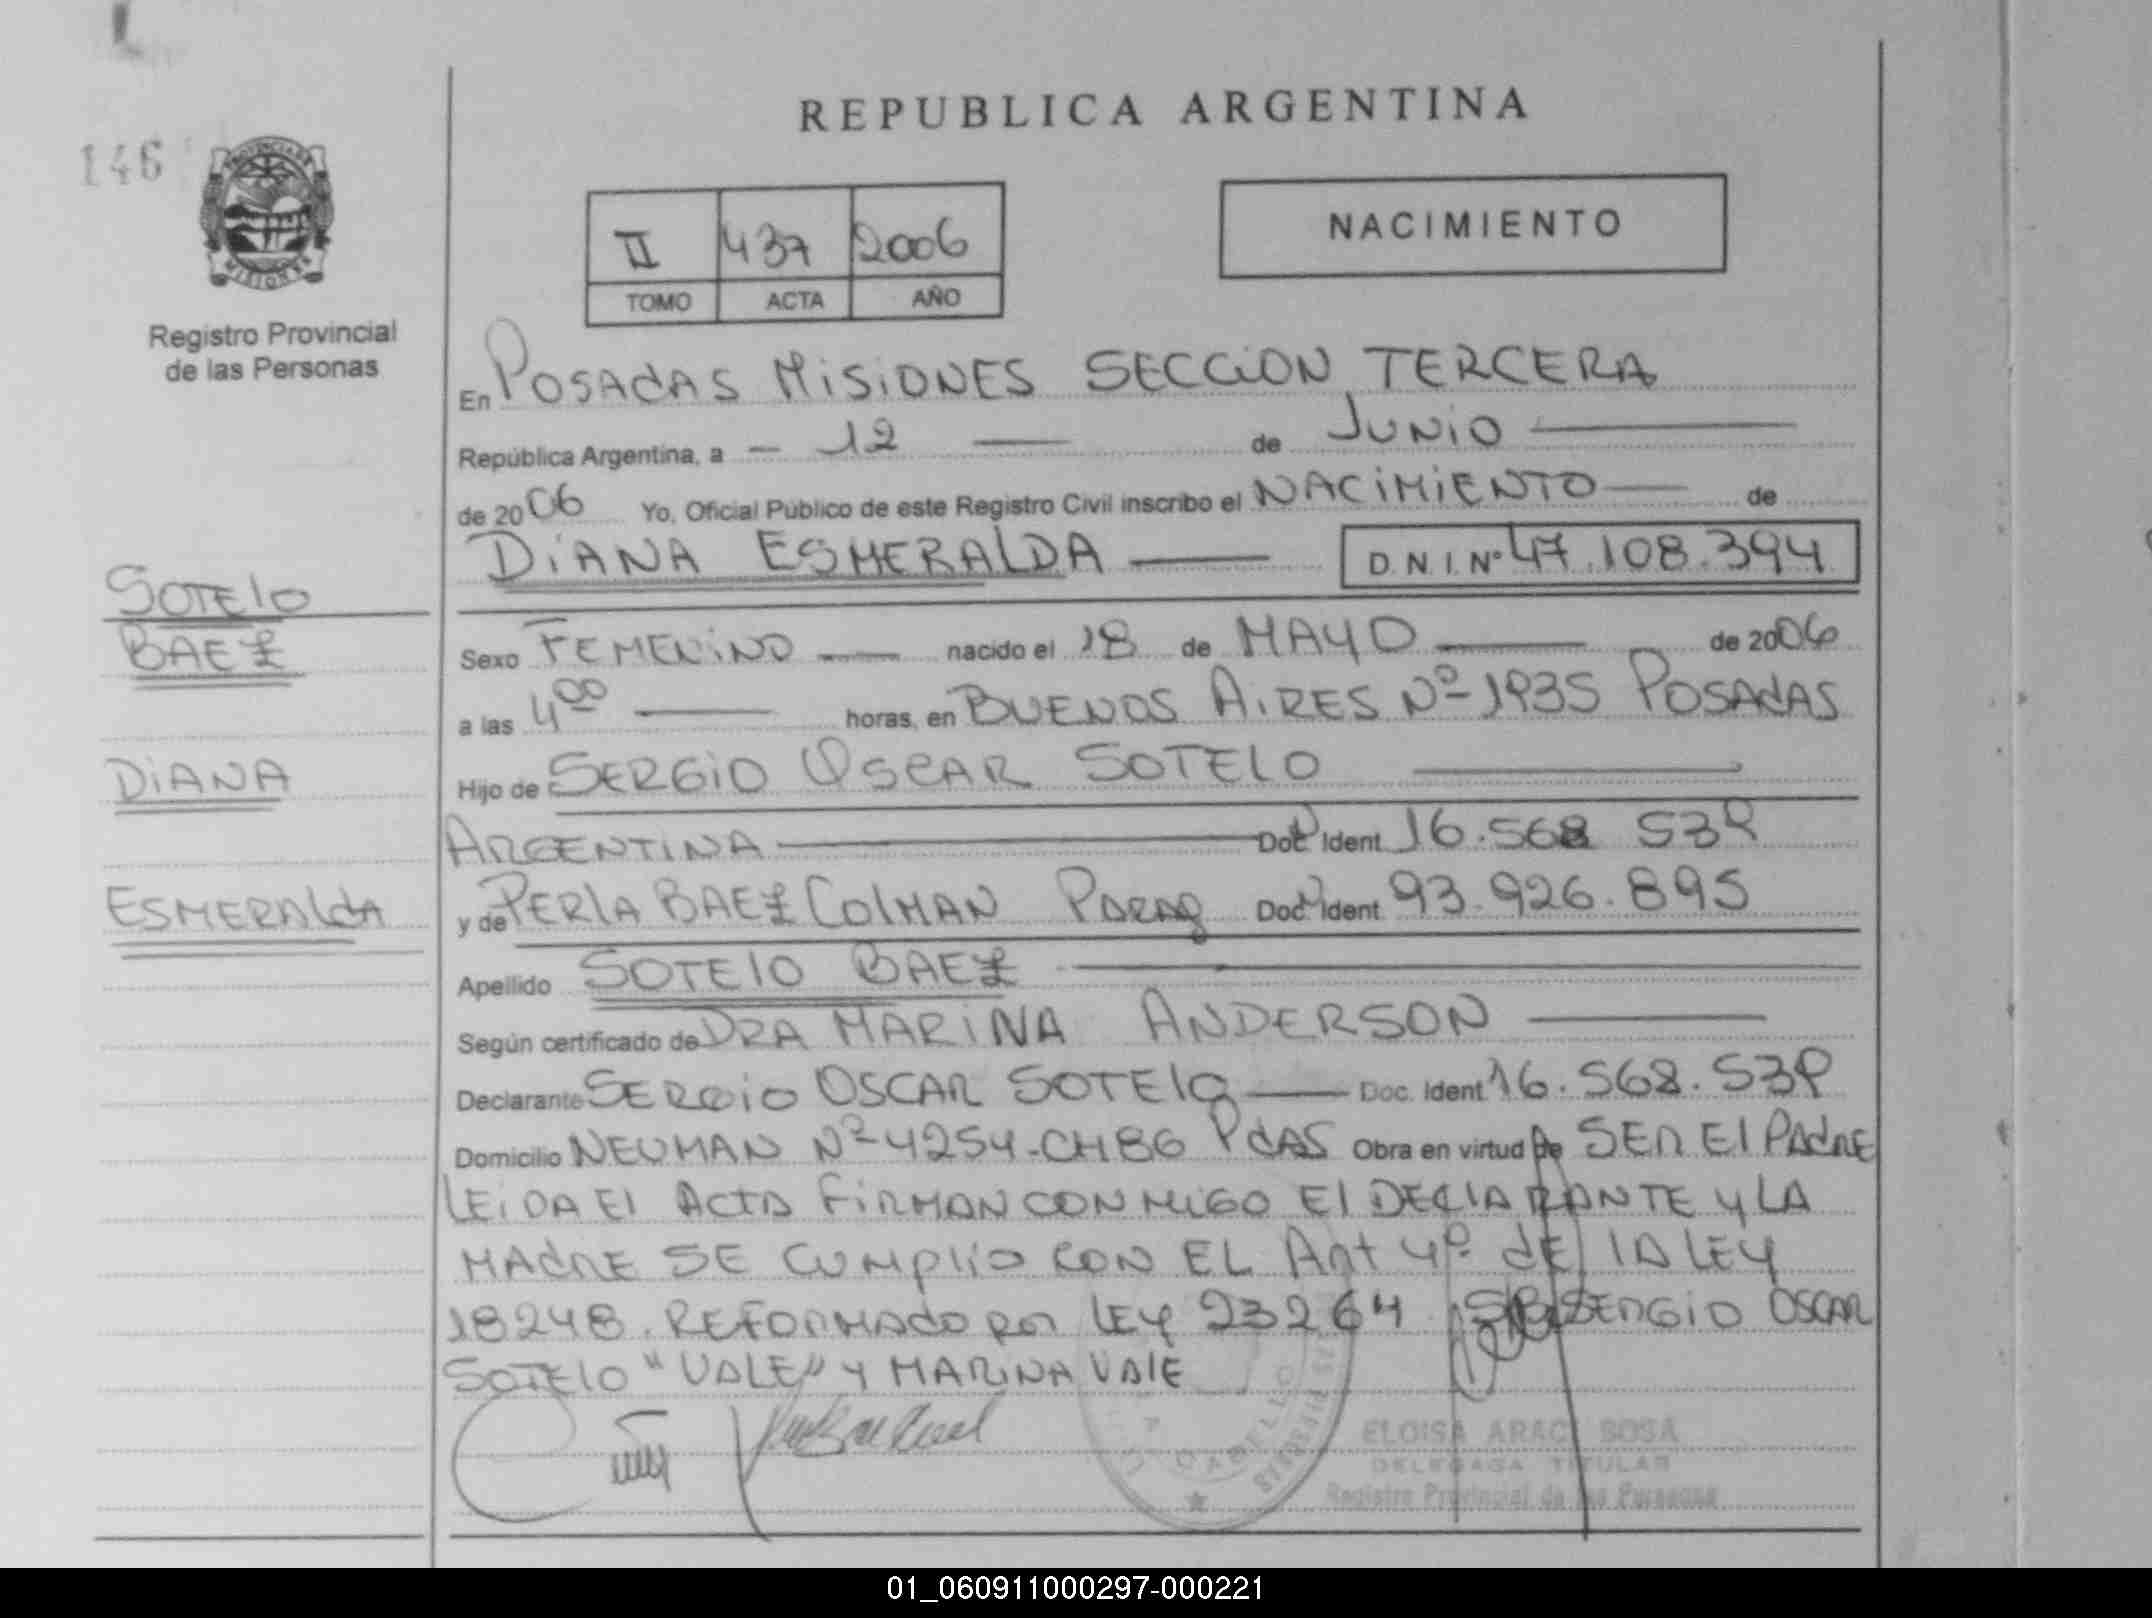 REPUBLICA ARGENTINA
146
PROVINCIA DE
MISIONES
Registro Provincial
de las Personas
II 437 2006
TOMO ACTA AÑO
NACIMIENTO
En POSADAS MISIONES SECCION TERCERA
República Argentina, a - 12 — de JUNIO —
de 2006 Yo, Oficial Público de este Registro Civil inscribo el NACIMIENTO — de
DIANA ESMERALDA — D.N.I. Nº 47.108.394
SOTELO
BAEZ
DIANA
ESMERALDA
Sexo FEMENINO — nacido el 18 de MAYO — de 2006
a las 4⁰⁰ — horas, en BUENOS AIRES Nº 1935 POSADAS
Hijo de SERGIO OSCAR SOTELO —
ARGENTINA — Doc. Ident. 16.568 539
y de PERLA BAEZ COLMAN PARAG Doc. Ident. 93.926.895
Apellido SOTELO BAEZ —
Según certificado de DRA MARINA ANDERSON —
Declarante SERGIO OSCAR SOTELO — Doc. Ident. 16.568.539
Domicilio NEUMAN Nº 4254-CH86 PdAS Obra en virtud de SER El PADRE
LEIDA El ACTA FIRMAN CONMIGO El DECLARANTE y LA
MADRE SE CUMPLIO CON EL Art 4º de LA LEY
18248. REFORMADO POR LEY 23264 SERGIO OSCAR
SOTELO "VALE" Y MARINA VALE
ELOISA ARACI SOSA
DELEGADA TITULAR
Registro Provincial de las Personas
01_060911000297-000221